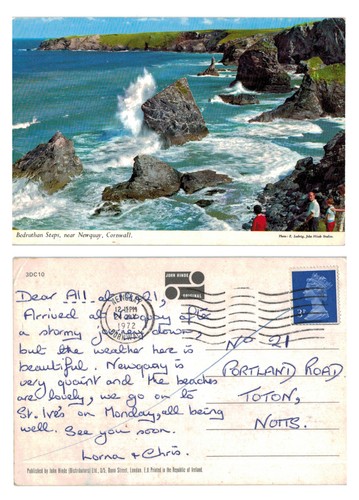 Bedruthan Steps, near Newquay, Cornwall.
Photo: E. Ludwig, John Hinde Studios
2DC10
JOHN HINDE
Dear All at
Arrived at Newquay after
a stormy journey down,
but the weather here is
beautiful. Newquay is
very quaint and the beaches
are lovely, we go on to
St. Ives on Monday, all being
well. See you soon.
Lorna + Chris.
NEWQUAY
12-PM
1972
CORNWALL
No 21
PORTLAND ROAD
TOTON,
NOTTS.
Published by John Hinde (Distributors) Ltd., Dean Street, London. Printed in the Republic of Ireland.